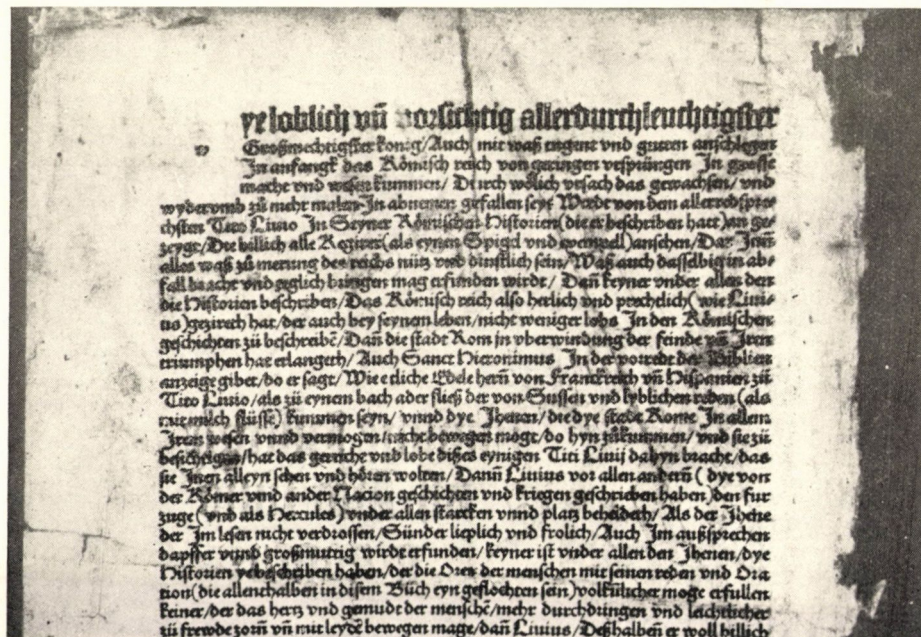 ye loblich vñ vorsichtig allerdurchleuchtigster
w Großmechtigster konig/Auch mit waß tugent vnd guten anschlegen
In anfangk das Römisch reich von geringen vrsprüngen In grosse
macht vnd wesen kummen/ Durch wölich vrsach das gewachsen/ vnd
wyderumb zů nicht malen In abnemen gefallen sey/ Wirdt von dem allerredspre⸗
chsten Tito Livio In Seyner Römischen Historien(die er beschriben hatt)an ge⸗
zeygt/Die billich alle Regirer(als eynen Spigel vnd exempell)ansehen/Dar Jnn
alles waß zů merung des reichs nütz vnd dinstlich sein/Waß auch dasselbig in ab⸗
fall bracht vnd zeglich bringen mag erfunden wirdt/ Dañ keyner vnder allen den
die Historien beschriben/Das Römisch reich also herlich vnd prechtlich(wie Livi⸗
us)gezireth hat/der auch bey seynem leben/nicht weniger lobs In den Römischen
geschichten zů beschreibē/Dañ die stadt Rom in vberwindung der feinde vñ Jren
triumphen hat erlangeth/ Auch Sanct Hieronimus In der vorrede der Biblien
anzeige gibet/do er sagt/Wie etliche Edele herñ von Franckreich vñ Hispanien zů
Tito Livio/als zů eynem bach ader fließ der von Sussen vnd lyblichen reden (als
mit milch flüsse) kummen seyn/ vnnd dye Jhenen/die dye stadt Rome In allem
Jrem wesen vnnd vermogen/nicht bewegen mögt/do hyn zůkummen/ vnd sie zů
besichtigen/hat das gerücht vnd lobe dißes eynigen Titi Livij dahyn bracht/das
sie Jnen alleyn sehen vnd hören wolten/ Danñ Livius vor allen anderñ ( dye von
der Römer vnnd ander Nacion geschichten vnd kriegen geschrieben haben)den fur
zuge(vnd als Hercules)vnder allen starcken vnnd platz behedeth/ Als der Jhene
der Jm lesen nicht verdrossen/Sünder lieplich vnd frolich/Auch Jm außsprechen
dapffer vnnd großmutig wirdt erfunden/keyner ist vnder allen den Jhenen/dye
Historien ye beschriben haben/der die Oren der menschen mit seinen reden vnd Ora
tion(die allenthalben in disem Bůch eyn geflochten sein)volkůlicher moge erfullen
keiner/der das hertz vnd gemudt der menschē/mehr durchdüngen vnd leichtlicher
zů frewde zorñ vñ mit leydē bewegen mage/dañ Livius/Deßhalben er woll billich